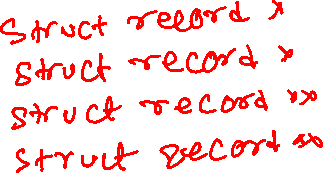 Struct record *
Struct record *
Struct record **
Struct record **